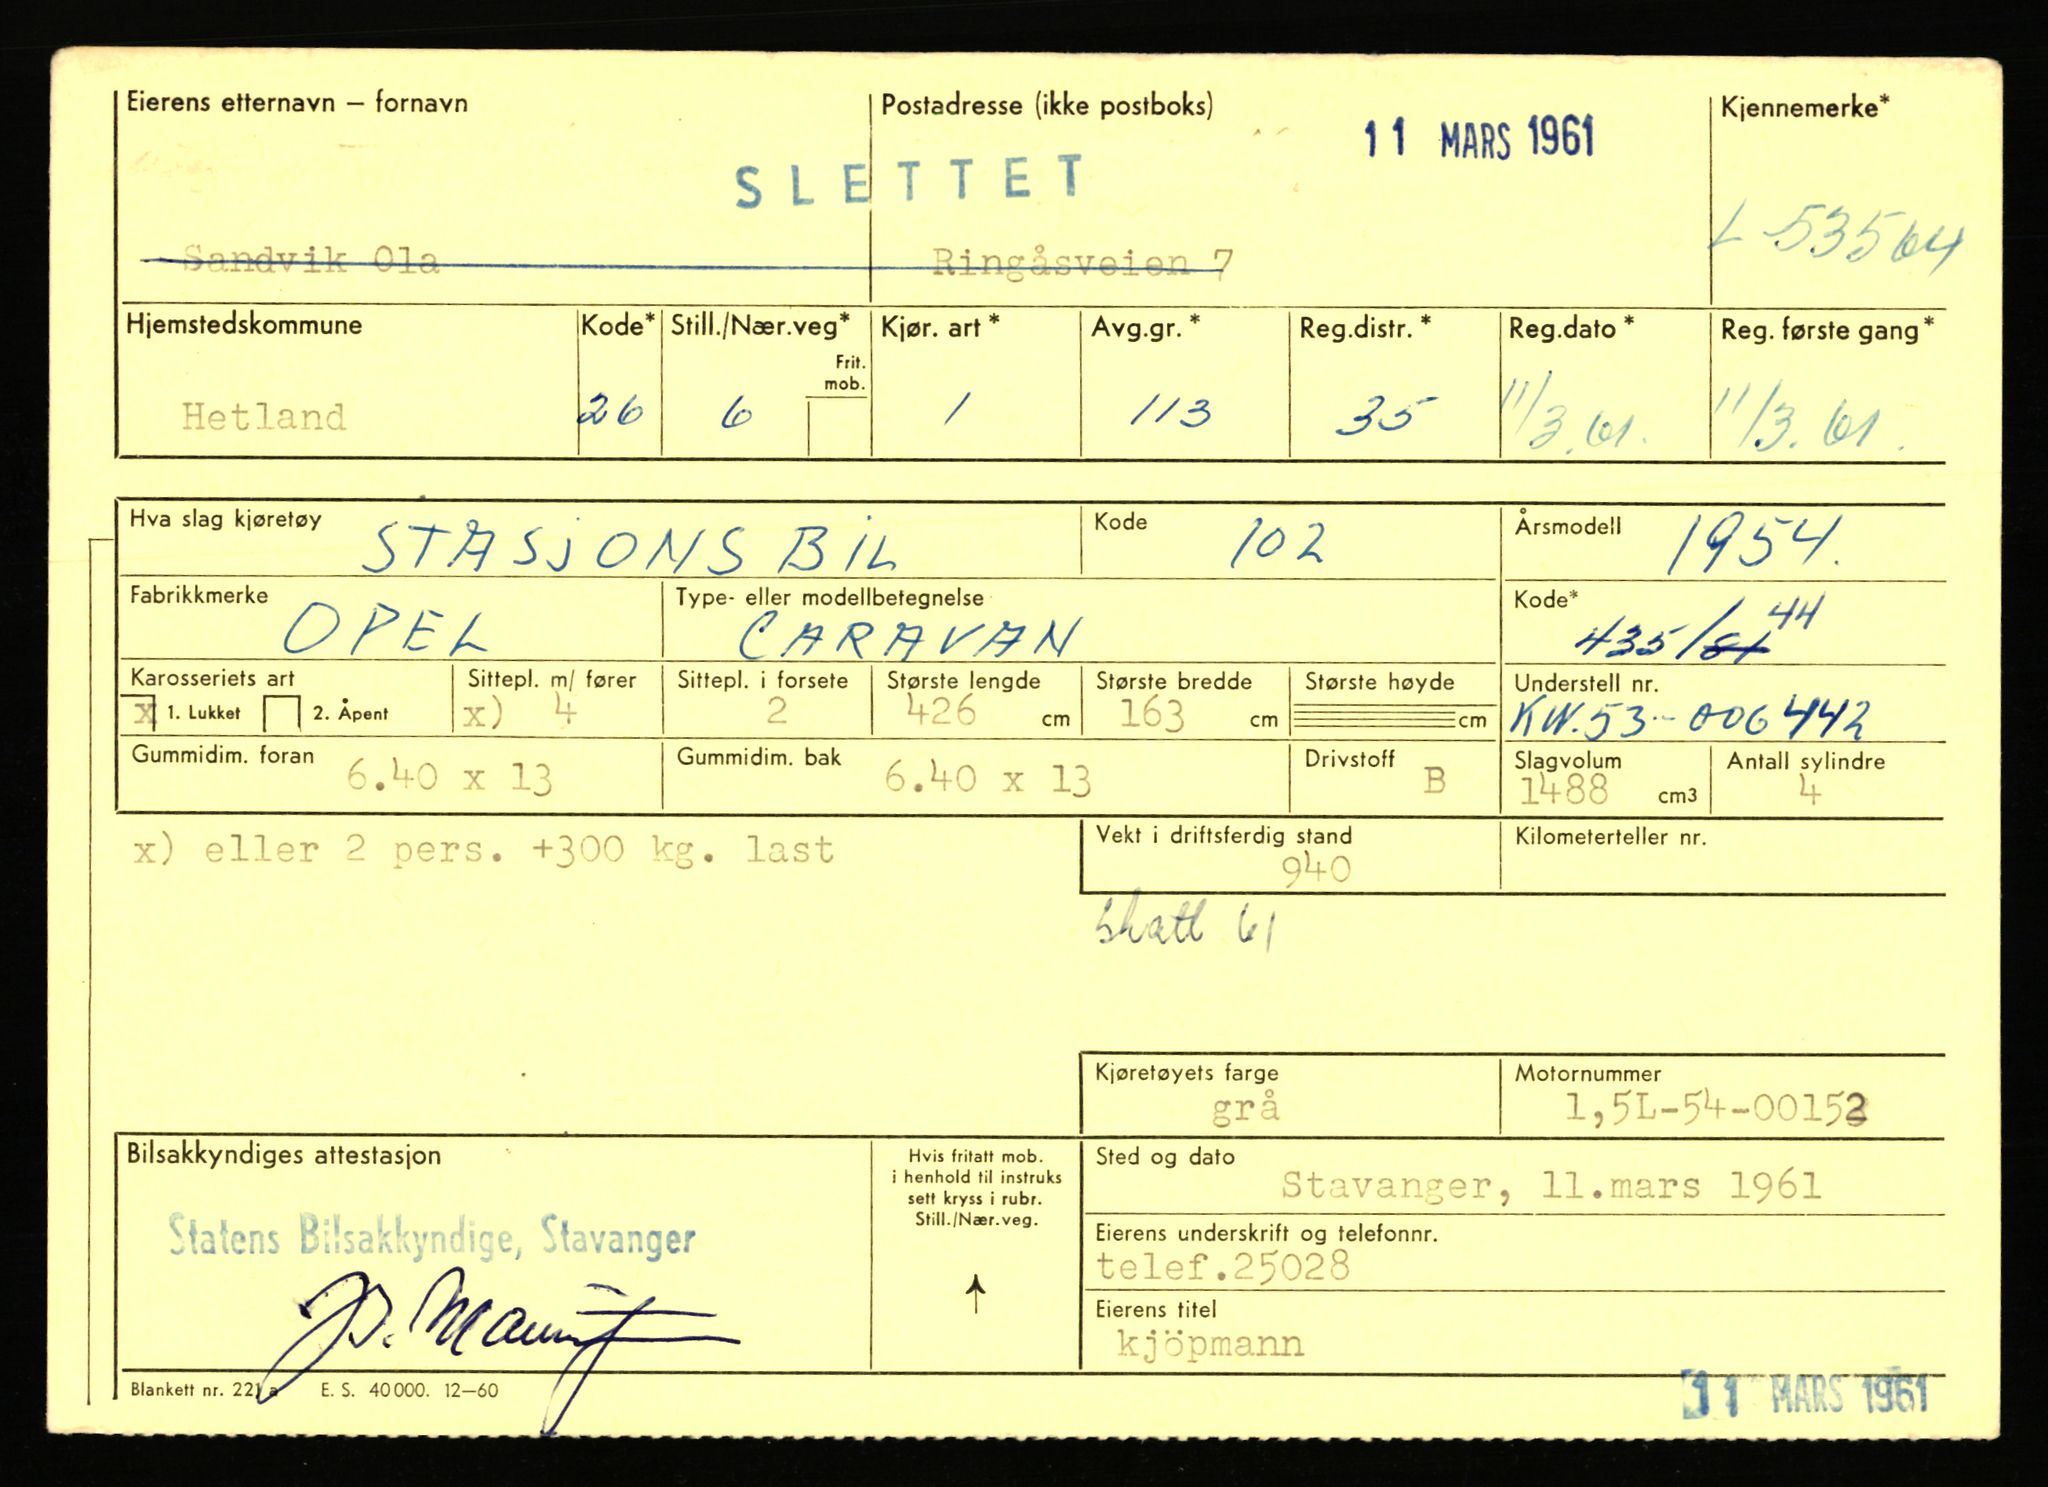 Eierens etternavn – fornavn
Postadresse (ikke postboks)
11 MARS 1961
Kjennemerke*
SLETTET
L-53564
Sandvik Ola
Ringåsveien 7
Hjemstedskommune
Kode*
Still./Nær.veg*
Frit. mob.
Kjør. art*
Avg.gr.*
Reg.distr.*
Reg.dato*
Reg. første gang*
Hetland
26
6
1
113
35
11/3.61.
11/3.61.
Hva slag kjøretøy
STASJONSBIL
Kode
102
Årsmodell
1954.
Fabrikkmerke
OPEL
Type- eller modellbetegnelse
CARAVAN
Kode*
435/ 44
Karosseriets art
x 1. Lukket
2. Åpent
Sittepl. m/ fører
x) 4
Sittepl. i forsete
2
Største lengde
426 cm
Største bredde
163 cm
Største høyde
cm
Understell nr.
KW.53-006442
Gummidim. foran
6.40 x 13
Gummidim. bak
6.40 x 13
Drivstoff
B
Slagvolum
1488 cm3
Antall sylindre
4
x) eller 2 pers. +300 kg. last
Vekt i driftsferdig stand
940
Kilometerteller nr.
skatt 61
Kjøretøyets farge
grå
Motornummer
1,5L-54-00152
Bilsakkyndiges attestasjon
Statens Bilsakkyndige, Stavanger
Hvis fritatt mob.
i henhold til instruks
sett kryss i rubr.
Still./Nær.veg.
Sted og dato
Stavanger, 11.mars 1961
Eierens underskrift og telefonnr.
telef.25028
Eierens titel
kjöpmann
Blankett nr. 221 a E. S. 40000. 12–60
11 MARS 1961